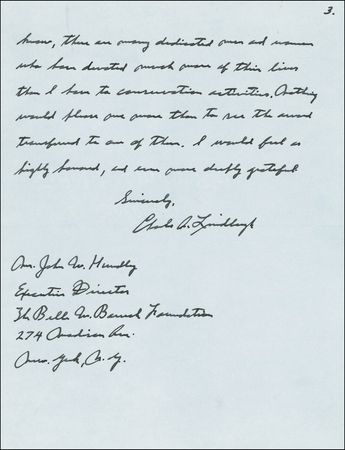 3.
know, there are many dedicated men and women
who have devoted much more of their lives
than I have to conservation activities. Nothing
would please me more than to see the award
transferred to one of them. I would feel as
highly honored, and even more deeply grateful.
Sincerely,
Charles A. Lindbergh
Mr. John W.
Executive Director
The Belle W. Baruch Foundation
274 Madison Ave.
New York, N.Y.